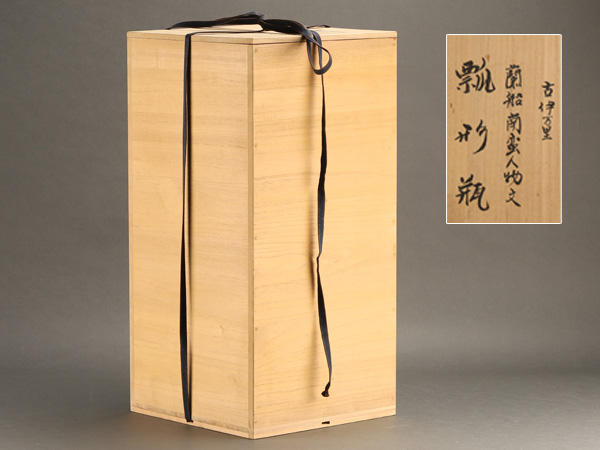 古伊万里
蘭船南蛮人物文
瓢形瓶